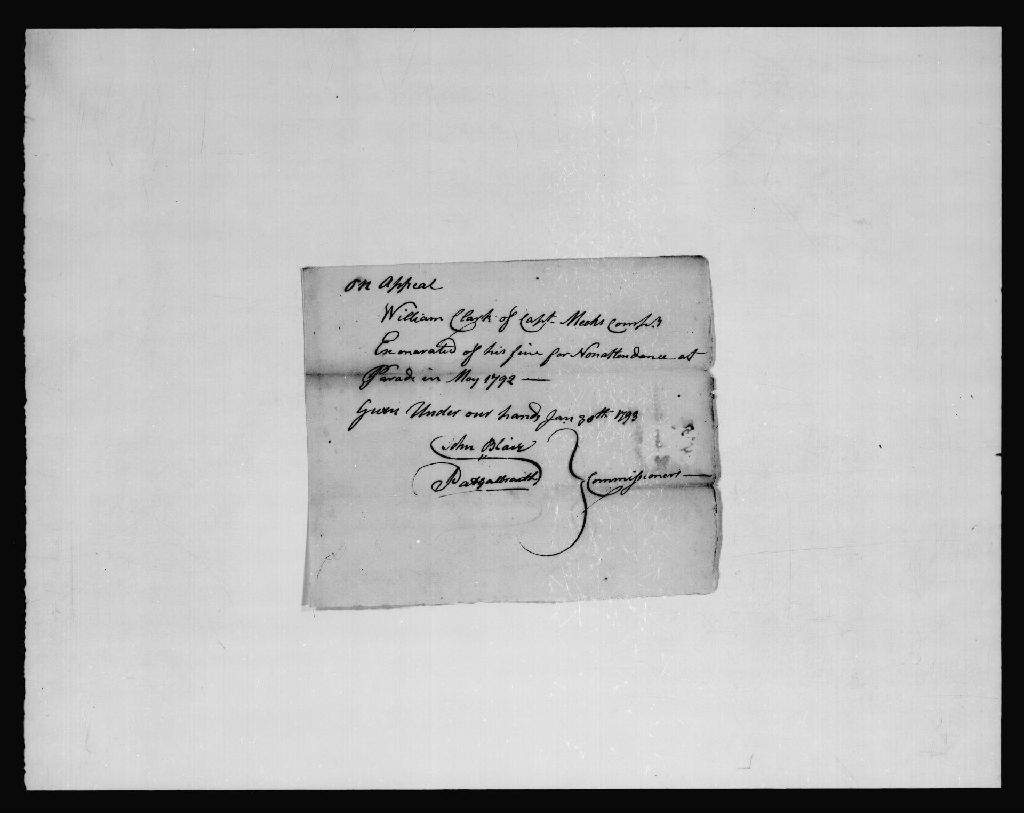 on Appeal
William Clark of Capt. Meeks Comp.y
Exonarated of his fine for Nonattendance at
Parade in May 1792 —
Given Under our hands Jan 30th 1793
John Blair
Pat Galbraith
Commissioners